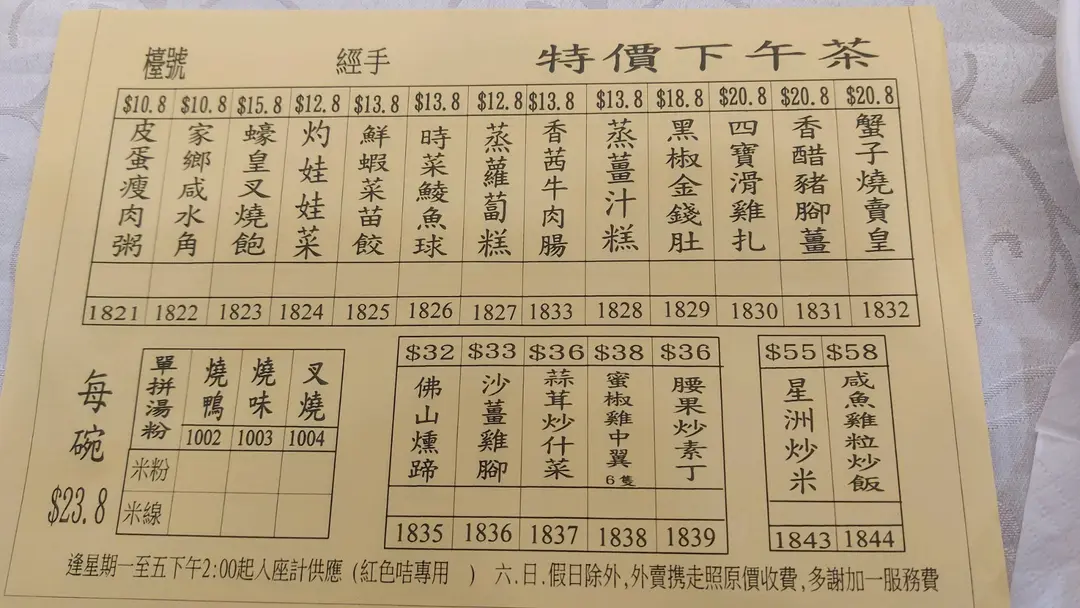 檯號 經手 特價下午茶
$10.8 $10.8 $15.8 $12.8 $13.8 $13.8 $12.8 $13.8 $13.8 $18.8 $20.8 $20.8 $20.8
皮蛋瘦肉粥
家鄉咸水角
蠔皇叉燒飽
灼娃娃菜
鮮蝦菜苗餃
時菜鯪魚球
蒸蘿蔔糕
香茜牛肉腸
蒸薑汁糕
黑椒金錢肚
四寶滑雞扎
香醋豬腳薑
蟹子燒賣皇
1821 1822 1823 1824 1825 1826 1827 1833 1828 1829 1830 1831 1832
每碗
$23.8
單拼湯粉
燒鴨
燒味
叉燒
1002 1003 1004
米粉
米線
$32 $33 $36 $38 $36
佛山燻蹄
沙薑雞腳
蒜茸炒什菜
蜜椒雞中翼
6隻
腰果炒素丁
1835 1836 1837 1838 1839
$55 $58
星洲炒米
咸魚雞粒炒飯
1843 1844
逢星期一至五下午2:00起入座計供應 (紅色咭專用 ) 六.日.假日除外,外賣携走照原價收費,多謝加一服務費